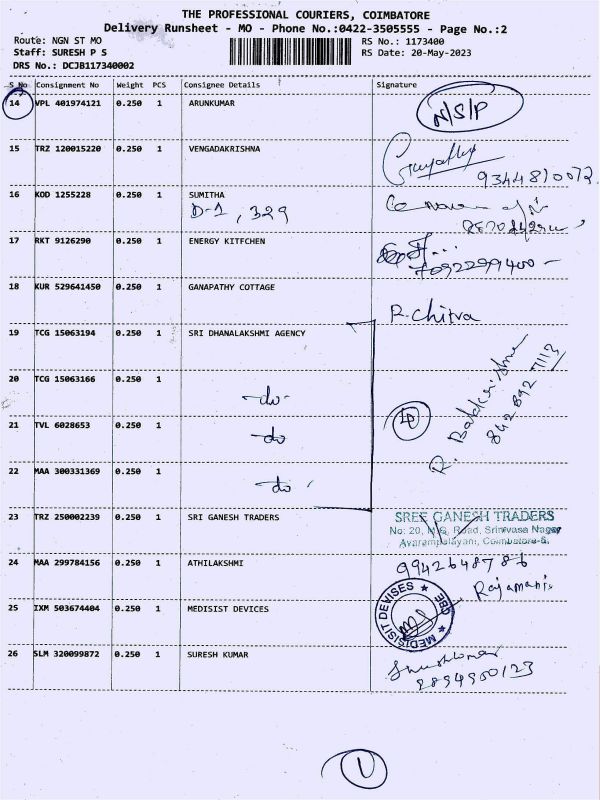 THE PROFESSIONAL COURIERS, COIMBATORE
Delivery Runsheet - MO - Phone No.:0422-3505555 - Page No.:2
Route: NGN ST MO RS No.: 1173400
Staff: SURESH P S RS Date: 20-May-2023
DRS No.: DCJB117340002
S No Consignment No Weight PCS Consignee Details Signature
14 VPL 401974121 0.250 1 ARUNKUMAR N/S/P
15 TRZ 120015220 0.250 1 VENGADAKRISHNA
9344810072
16 KOD 1255228 0.250 1 SUMITHA
D-1, 329
17 RKT 9126290 0.250 1 ENERGY KITFCHEN
7092299400
18 KUR 529641450 0.250 1 GANAPATHY COTTAGE
R.Chitra
19 TCG 15063194 0.250 1 SRI DHANALAKSHMI AGENCY
20 TCG 15063166 0.250 1
-do-
21 TVL 6028653 0.250 1
-do
22 MAA 300331369 0.250 1
-do
R. Balakrishna
842 892 7113
23 TRZ 250002239 0.250 1 SRI GANESH TRADERS SREE GANESH TRADERS
No: 20, M.G. Road, Srinivasa Nagar
Avarampalayam, Coimbatore-6.
24 MAA 299784156 0.250 1 ATHILAKSHMI 9942648786
Rajamani
25 IXM 503674404 0.250 1 MEDISIST DEVICES MEDISIST DEVISES ★ CBE ★
26 SLM 320099872 0.250 1 SURESH KUMAR
9894950123